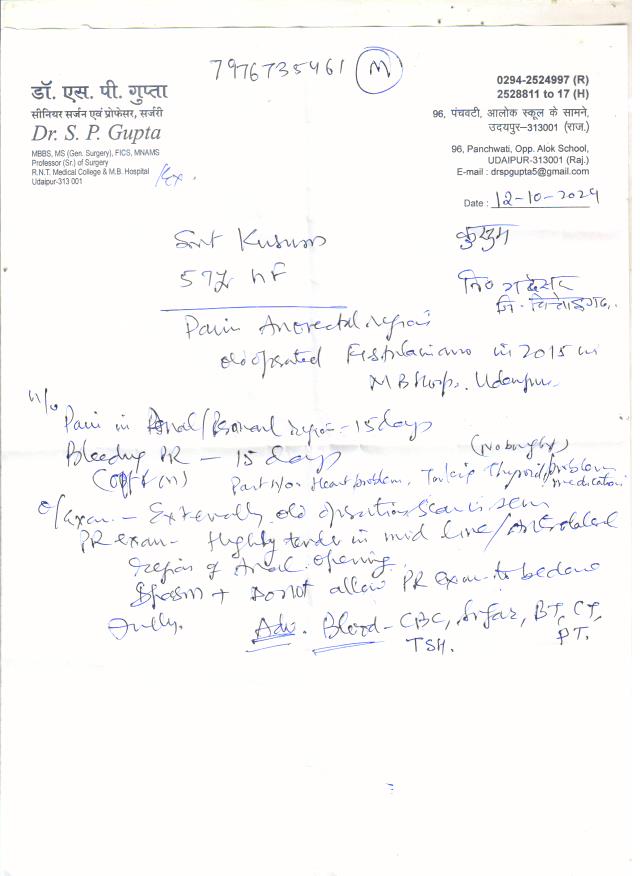 7976735461 M
डॉ. एस. पी. गुप्ता
सीनियर सर्जन एवं प्रोफेसर, सर्जरी
Dr. S. P. Gupta
MBBS, MS (Gen. Surgery), FICS, MNAMS
Professor (Sr.) of Surgery
R.N.T. Medical College & M.B. Hospital
Udaipur-313 001
0294-2524997 (R)
2528811 to 17 (H)
96, पंचवटी, आलोक स्कूल के सामने,
उदयपुर–313001 (राज.)
96, Panchwati, Opp. Alok School,
UDAIPUR-313001 (Raj.)
E-mail : drspgupta5@gmail.com
Date : 12-10-2024
Smt Kusum
कुसुम
57yr
Pain Anorectal region
old operated in 2015 in
M B Hosp. Udaipur
H/o
Pain in Anal/ region - 15 days
Bleeding PR - 15 days
Past H/o Heart problem, Thyroid problem
medication
O/Exam - Externally old operation scar is seen
PR exam - Highly tender in mid line/
region of Anal opening
Spasm + Do not allow PR exam to be done
fully.
Adv. Blood - CBC, Sugar, BT, CT,
PT.
TSH.